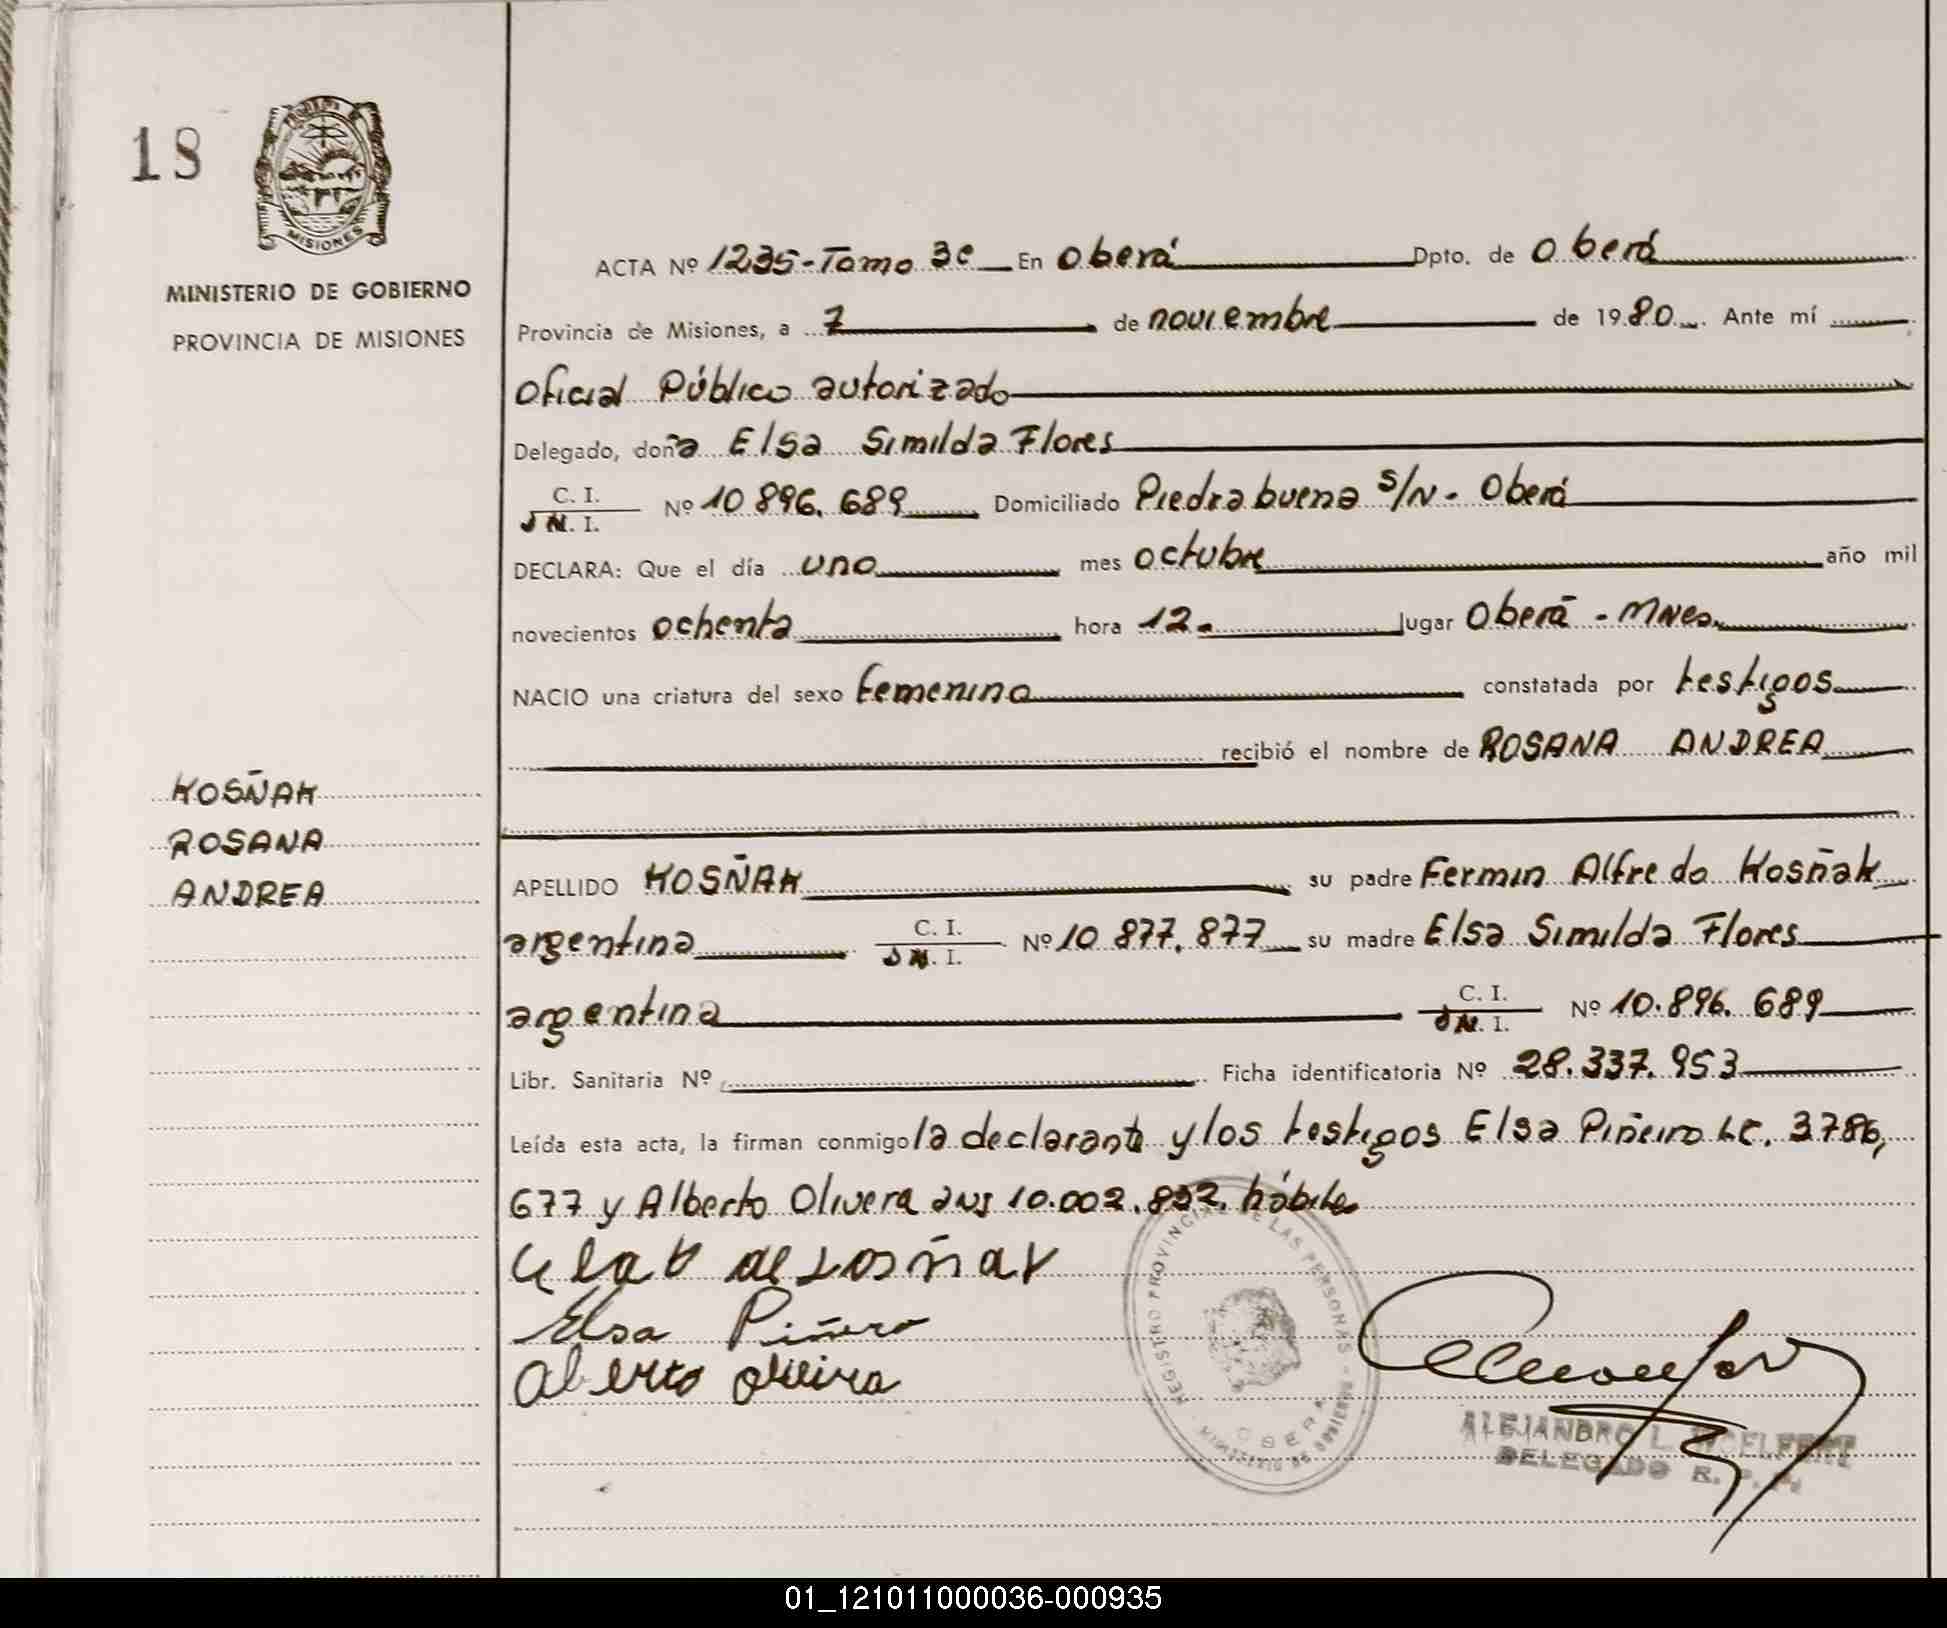 18
MISIONES
MINISTERIO DE GOBIERNO
PROVINCIA DE MISIONES
ACTA Nº 1235-Tomo 3º En Oberá Dpto. de Oberá
Provincia de Misiones, a 7 de noviembre de 1980. Ante mí
Oficial Público autorizado
Delegado, doña Elsa Similda Flores
C. I.
D N. I. Nº 10 896. 689 Domiciliado Piedrabuena S/N - Oberá
DECLARA: Que el día uno mes octubre año mil
novecientos ochenta hora 12. lugar Oberá - Mnes.
NACIO una criatura del sexo femenino constatada por testigos
recibió el nombre de ROSANA ANDREA
KOSÑAK
ROSANA
ANDREA
APELLIDO KOSÑAK su padre Fermin Alfredo Kosñak
argentina C. I.
D N. I. Nº 10 877. 877 su madre Elsa Similda Flores
argentina C. I.
D N. I. Nº 10.896. 689
Libr. Sanitaria Nº Ficha identificatoria Nº 28.337.953
Leída esta acta, la firman conmigo la declarante y los testigos Elsa Piñeiro LC. 3786,
677 y Alberto Olivera DNI 10.002.832. hábiles
de Kosñak
Elsa Piñero
Alberto Oliveira
REGISTRO PROVINCIAL DE LAS PERSONAS - MINISTERIO DE GOBIERNO
OBERA
ALEJANDRO L. WOELFERT
DELEGADO R. P. P.
01_121011000036-000935